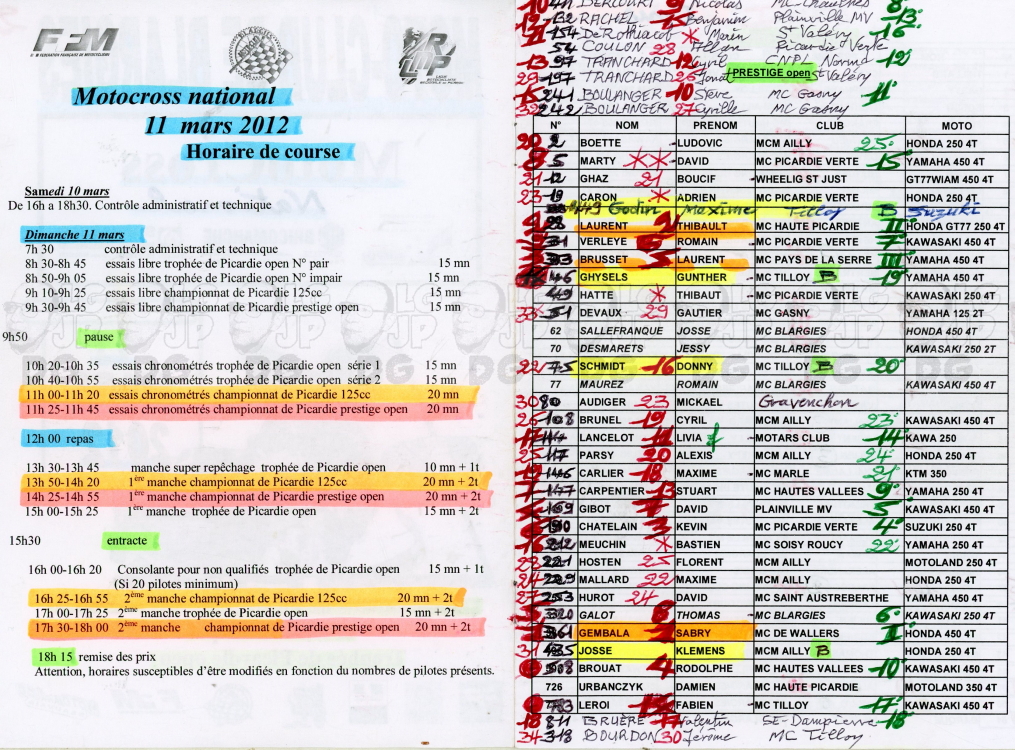 FFM
FEDERATION FRANÇAISE DE MOTOCYCLISME
Motocross national
11 mars 2012
Horaire de course
Samedi 10 mars
De 16h a 18h30. Contrôle administratif et technique
Dimanche 11 mars
7h 30 contrôle administratif et technique
8h 30-8h 45 essais libre trophée de Picardie open N° pair 15 mn
8h 50-9h 05 essais libre trophée de Picardie open N° impair 15 mn
9h 10-9h 25 essais libre championnat de Picardie 125cc 15 mn
9h 30-9h 45 essais libre championnat de Picardie prestige open 15 mn
9h50 pause
10h 20-10h 35 essais chronométrés trophée de Picardie open série 1 15 mn
10h 40-10h 55 essais chronométrés trophée de Picardie open série 2 15 mn
11h 00-11h 20 essais chronométrés championnat de Picardie 125cc 20 mn
11h 25-11h 45 essais chronométrés championnat de Picardie prestige open 20 mn
12h 00 repas
13h 30-13h 45 manche super repêchage trophée de Picardie open 10 mn + 1t
13h 50-14h 20 1ère manche championnat de Picardie 125cc 20 mn + 2t
14h 25-14h 55 1ère manche championnat de Picardie prestige open 20 mn + 2t
15h 00-15h 25 1ère manche trophée de Picardie open 15 mn + 1t
15h30 entracte
16h 00-16h 20 Consolante pour non qualifiés trophée de Picardie open 15 mn + 1t
(Si 20 pilotes minimum)
16h 25-16h 55 2ème manche championnat de Picardie 125cc 20 mn + 2t
17h 00-17h 25 2ème manche trophée de Picardie open 15 mn + 2t
17h 30-18h 00 2ème manche championnat de Picardie prestige open 20 mn + 2t
18h 15 remise des prix
Attention, horaires susceptibles d'être modifiés en fonction du nombres de pilotes présents.
Nicolas
132 RACHEL 15 Benjamin Plainville MV 13
154 DeRothiacob St Valéry 16
54 COULON 28 Picardie Verte
13 97 TRANCHARD 12 Cyril CNPL Normd 12
29 197 TRANCHARD 26 PRESTIGE open St Valéry
15 241 BOULANGER 10 Steve MC Gasny 11
242 BOULANGER 27 Cyrille MC Gasny
N° NOM PRENOM CLUB MOTO
20 2 BOETTE LUDOVIC MCM AILLY 25 HONDA 250 4T
8 5 MARTY DAVID MC PICARDIE VERTE 15 YAMAHA 450 4T
21 12 GHAZ 21 BOUCIF WHEELIG ST JUST GT77WIAM 450 4T
23 19 CARON ADRIEN MC PICARDIE VERTE HONDA 250 4T
Godin Maxime Tilloy B Suzuki
LAURENT THIBAULT MC HAUTE PICARDIE II HONDA GT77 250 4T
VERLEYE 6 ROMAIN MC PICARDIE VERTE 7 KAWASAKI 450 4T
BRUSSET LAURENT MC PAYS DE LA SERRE III YAMAHA 450 4T
GHYSELS GUNTHER MC TILLOY B 19 YAMAHA 450 4T
HATTE THIBAUT MC PICARDIE VERTE KAWASAKI 250 4T
DEVAUX 29 GAUTIER MC GASNY YAMAHA 125 2T
62 SALLEFRANQUE JOSSE MC BLARGIES HONDA 450 4T
70 DESMARETS JESSY MC BLARGIES KAWASAKI 250 2T
22 75 SCHMIDT 16 DONNY MC TILLOY B 20 YAMAHA 450 4T
77 MAUREZ ROMAIN MC BLARGIES KAWASAKI 450 4T
30 80 AUDIGER 23 MICKAEL Gravenchon
26 108 BRUNEL 19 CYRIL MCM AILLY 23 KAWASAKI 450 4T
LANCELOT 11 LIVIA MOTARS CLUB 14 KAWA 250
25 117 PARSY 20 ALEXIS MCM AILLY 24 HONDA 250 4T
CARLIER 18 MAXIME MC MARLE 21 KTM 350
CARPENTIER 13 STUART MC HAUTES VALLEES 9 YAMAHA 250 4T
GIBOT 7 DAVID PLAINVILLE MV 5 KAWASAKI 450 4T
CHATELAIN 3 KEVIN MC PICARDIE VERTE 4 SUZUKI 250 4T
MEUCHIN BASTIEN MC SOISY ROUCY 22 YAMAHA 250 4T
22 221 HOSTEN 25 FLORENT MCM AILLY MOTOLAND 250 4T
24 229 MALLARD 22 MAXIME MCM AILLY HONDA 250 4T
27 253 HUROT 24 DAVID MC SAINT AUSTREBERTHE YAMAHA 450 4T
320 GALOT 8 THOMAS MC BLARGIES 6 KAWASAKI 250 4T
GEMBALA SABRY MC DE WALLERS HONDA 450 4T
31 JOSSE KLEMENS MCM AILLY B HONDA 250 4T
BROUAT 4 RODOLPHE MC HAUTES VALLEES 10 KAWASAKI 450 4T
726 URBANCZYK DAMIEN MC HAUTE PICARDIE MOTOLAND 350 4T
LEROI FABIEN MC TILLOY 17 KAWASAKI 450 4T
18 811 BRUÈRE 17 Valentin SE-Dampierre 18
34 318 BOURDON 30 Jérôme MC Tilloy